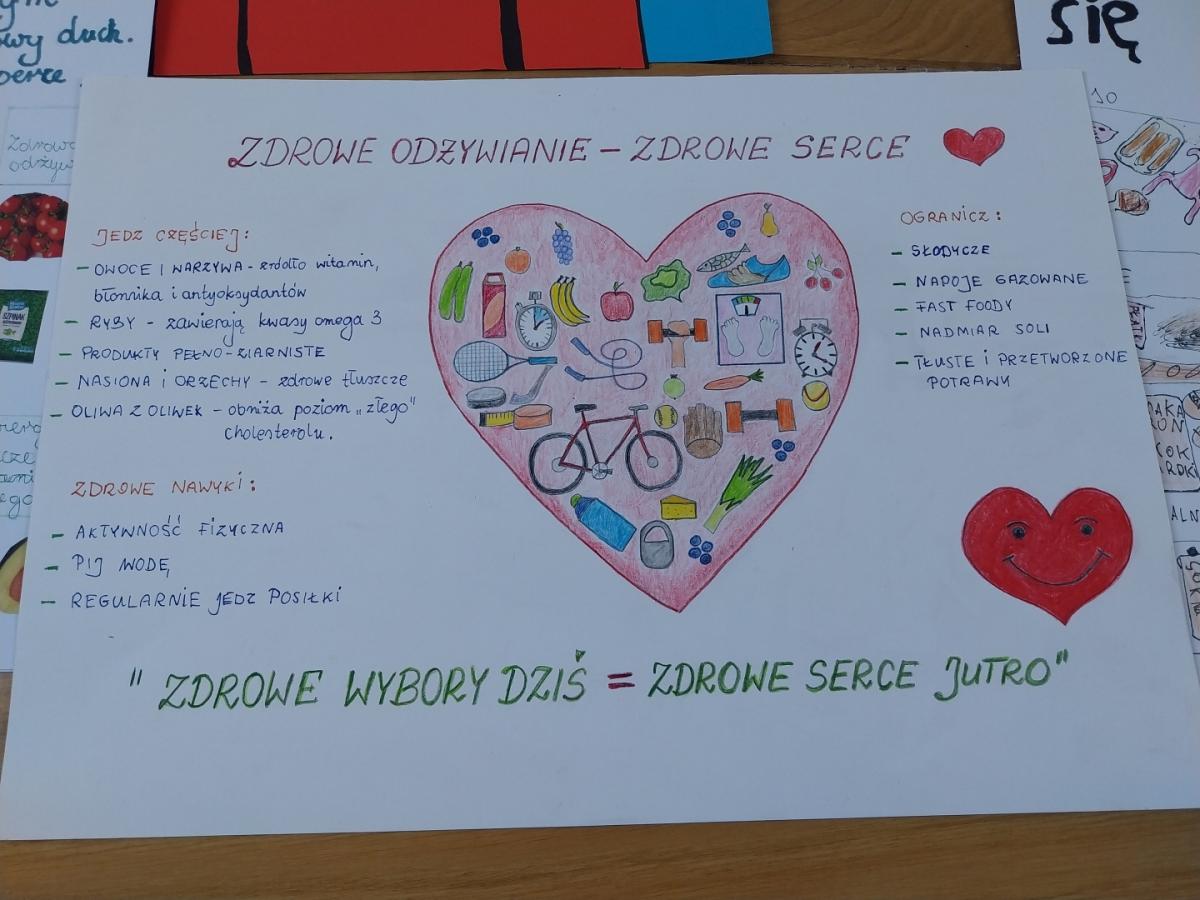 ym
owy duch.
serce
się
10
Zdrowe
odżyw
SZPINAK
ZDROWE ODŻYWIANIE – ZDROWE SERCE
JEDZ CZĘŚCIEJ:
– OWOCE I WARZYWA – źródło witamin,
błonnika i antyoksydantów
– RYBY – zawierają kwasy omega 3
– PRODUKTY PEŁNO-ZIARNISTE
– NASIONA i ORZECHY – zdrowe tłuszcze
– OLIWA Z OLIWEK – obniża poziom „złego"
cholesterolu.
ZDROWE NAWYKI:
– AKTYWNOŚĆ FIZYCZNA
– PIJ WODĘ
– REGULARNIE JEDZ POSIŁKI
OGRANICZ:
– SŁODYCZE
– NAPOJE GAZOWANE
– FAST FOODY
– NADMIAR SOLI
– TŁUSTE i PRZETWORZONE
POTRAWY
" ZDROWE WYBORY DZIŚ = ZDROWE SERCE JUTRO"